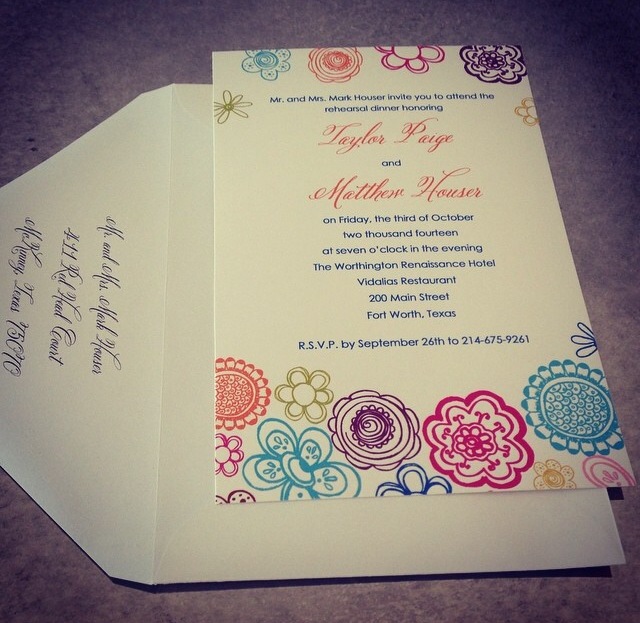 Mr. and Mrs. Mark Houser invite you to attend the
rehearsal dinner honoring
Taylor Paige
and
Matthew Houser
on Friday, the third of October
two thousand fourteen
at seven o'clock in the evening
The Worthington Renaissance Hotel
Vidalias Restaurant
200 Main Street
Fort Worth, Texas
R.S.V.P. by September 26th to 214-675-9261
Mr. and Mrs. Mark Houser
Court
McKinney, Texas 75070